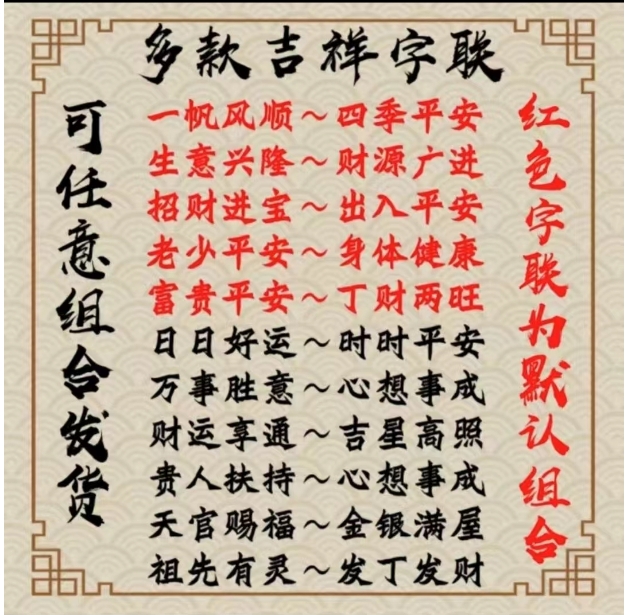 多款吉祥字联
可任意组合发货
一帆风顺～四季平安
生意兴隆～财源广进
招财进宝～出入平安
老少平安～身体健康
富贵平安～丁财两旺
日日好运～时时平安
万事胜意～心想事成
财运享通～吉星高照
贵人扶持～心想事成
天官赐福～金银满屋
祖先有灵～发丁发财
红色字联为默认组合